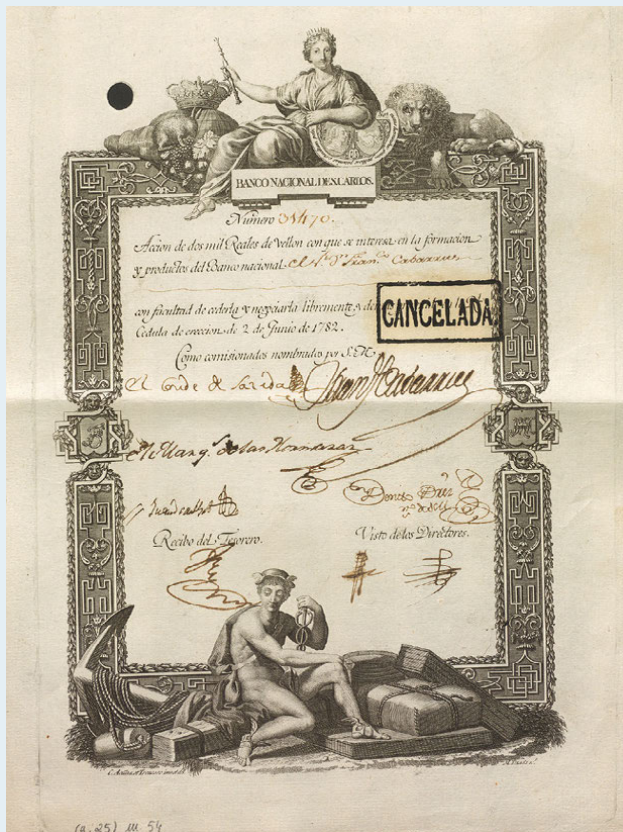 BANCO NACIONAL DE S. CARLOS.
Número 31470.
Accion de dos mil Reales de Vellon con que se interesa en la formacion
y productos del Banco nacional el Sr. Dn. Franco. Cabarrus
con facultad de cederla y negociarla libremente, y
CANCELADA
Cedula de ereccion de 2 de Junio de 1782.
Como comisionados nombrados por S. M.
el Conde de
Cabarrus
El Marqs. de las Hormazas
Recibo del Tesorero.
Visto de los Directores.
(a. 25) M. 54